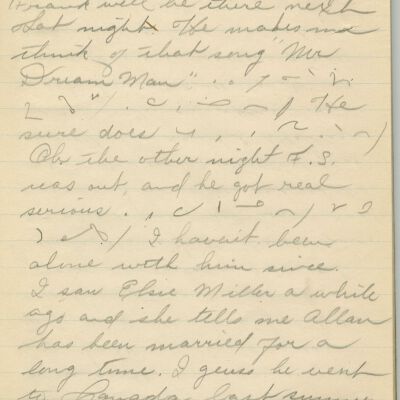 Frank will be there next
Sat night. He makes me
think of that song "Mr
Dream Man".
He
sure does
Oh the other night F.S.
was out, and he got real
serious.
I havent been
alone with him since.
I saw Elsie Miller a while
ago and she tells me Allan
has been married for a
long time. I guess he went
to Canada last summer